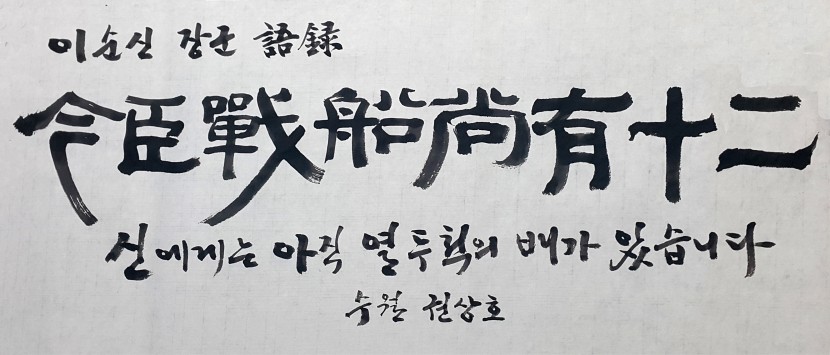 이순신 장군 語録
今臣戰船尙有十二
신에게는 아직 열두척의 배가 있습니다
수월 권상호